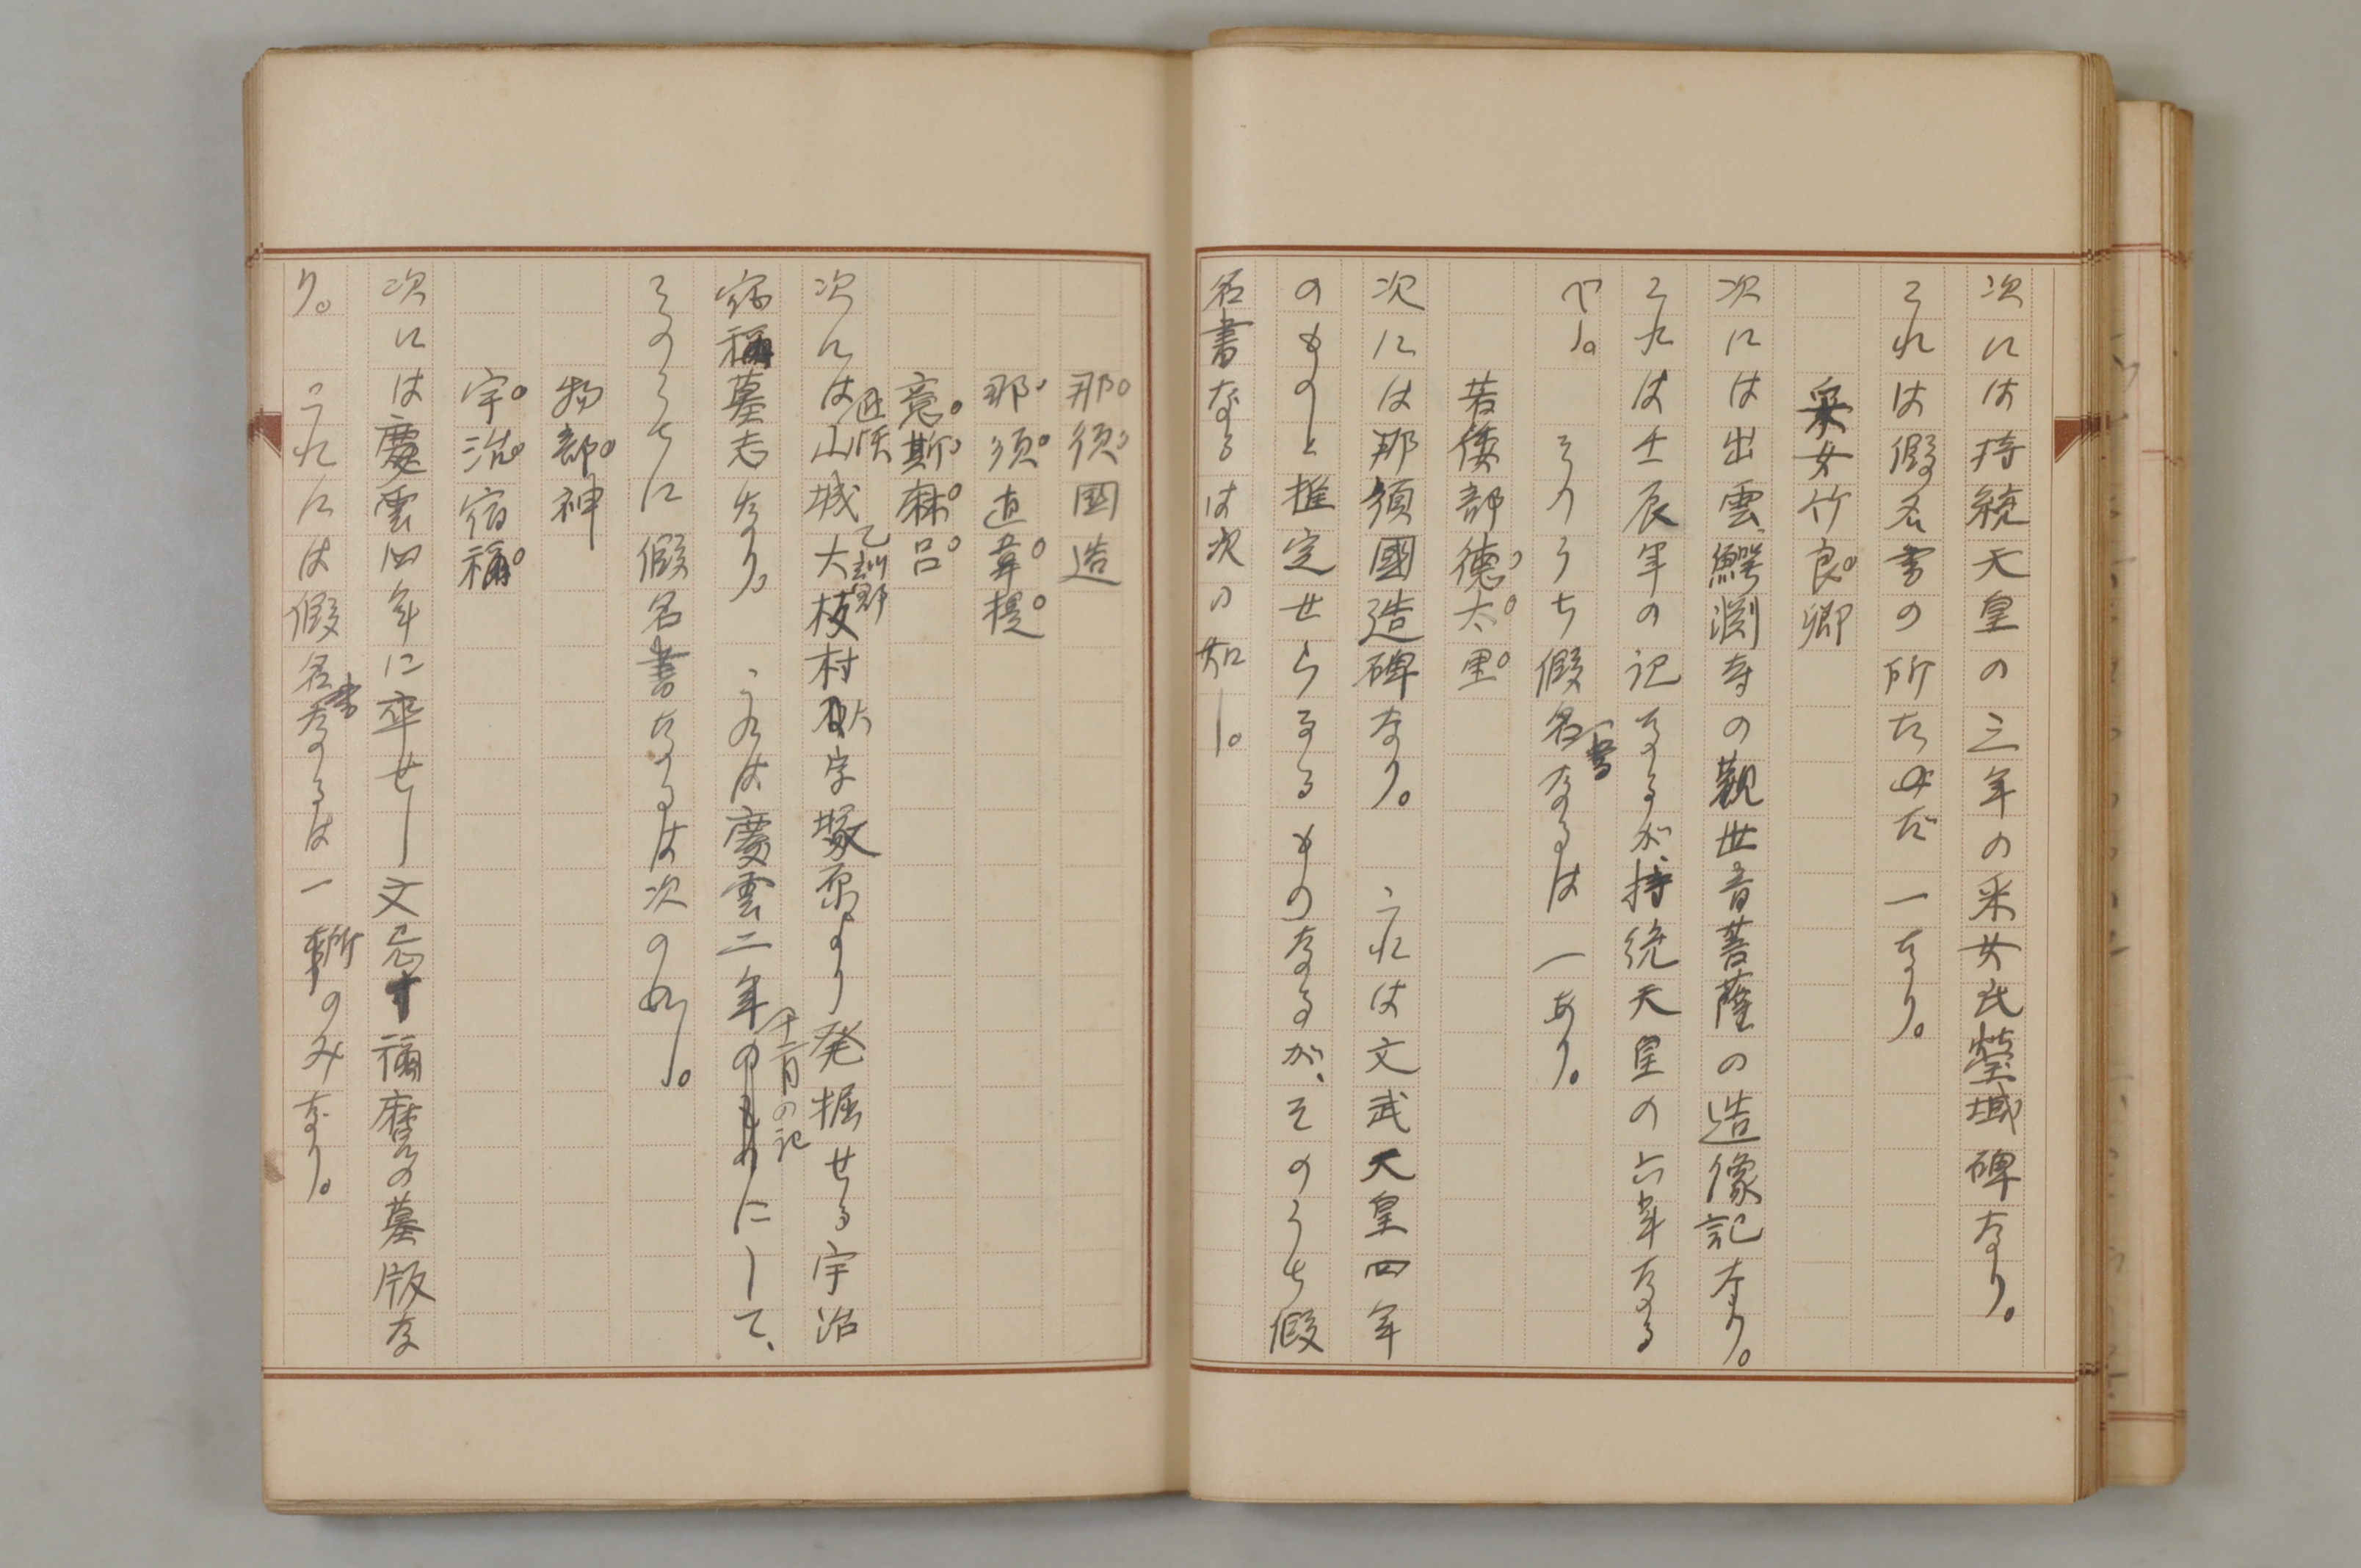 次には持統天皇の三年の采女氏塋域碑なり。
これは假名書の所たゞ一なり。
采女竹良卿
次には出雲鰐渕寺の觀世音菩薩の造像記なり。
これは壬辰年の記なるが、持統天皇の六年なる
べし。そのうち假名書なるは一あり。
若倭部德太里
次には那須國造碑なり。これは文武天皇四年
のものと推定せらるるものなるが、そのうち假
名書なるは次の如し。
那須國造
那須直韋提
意斯麻呂
次には近時山城乙訓郡大枝村大字塚原より発掘せる宇治
宿禰墓志なり。これは慶雲二年十二月の記にして、
そのうちに假名書なるは次の如し。
物部神
宇治宿禰
次には慶雲四年に卒せし文忌寸禰麿の墓版な
り。これには假名書なるは一所のみなり。